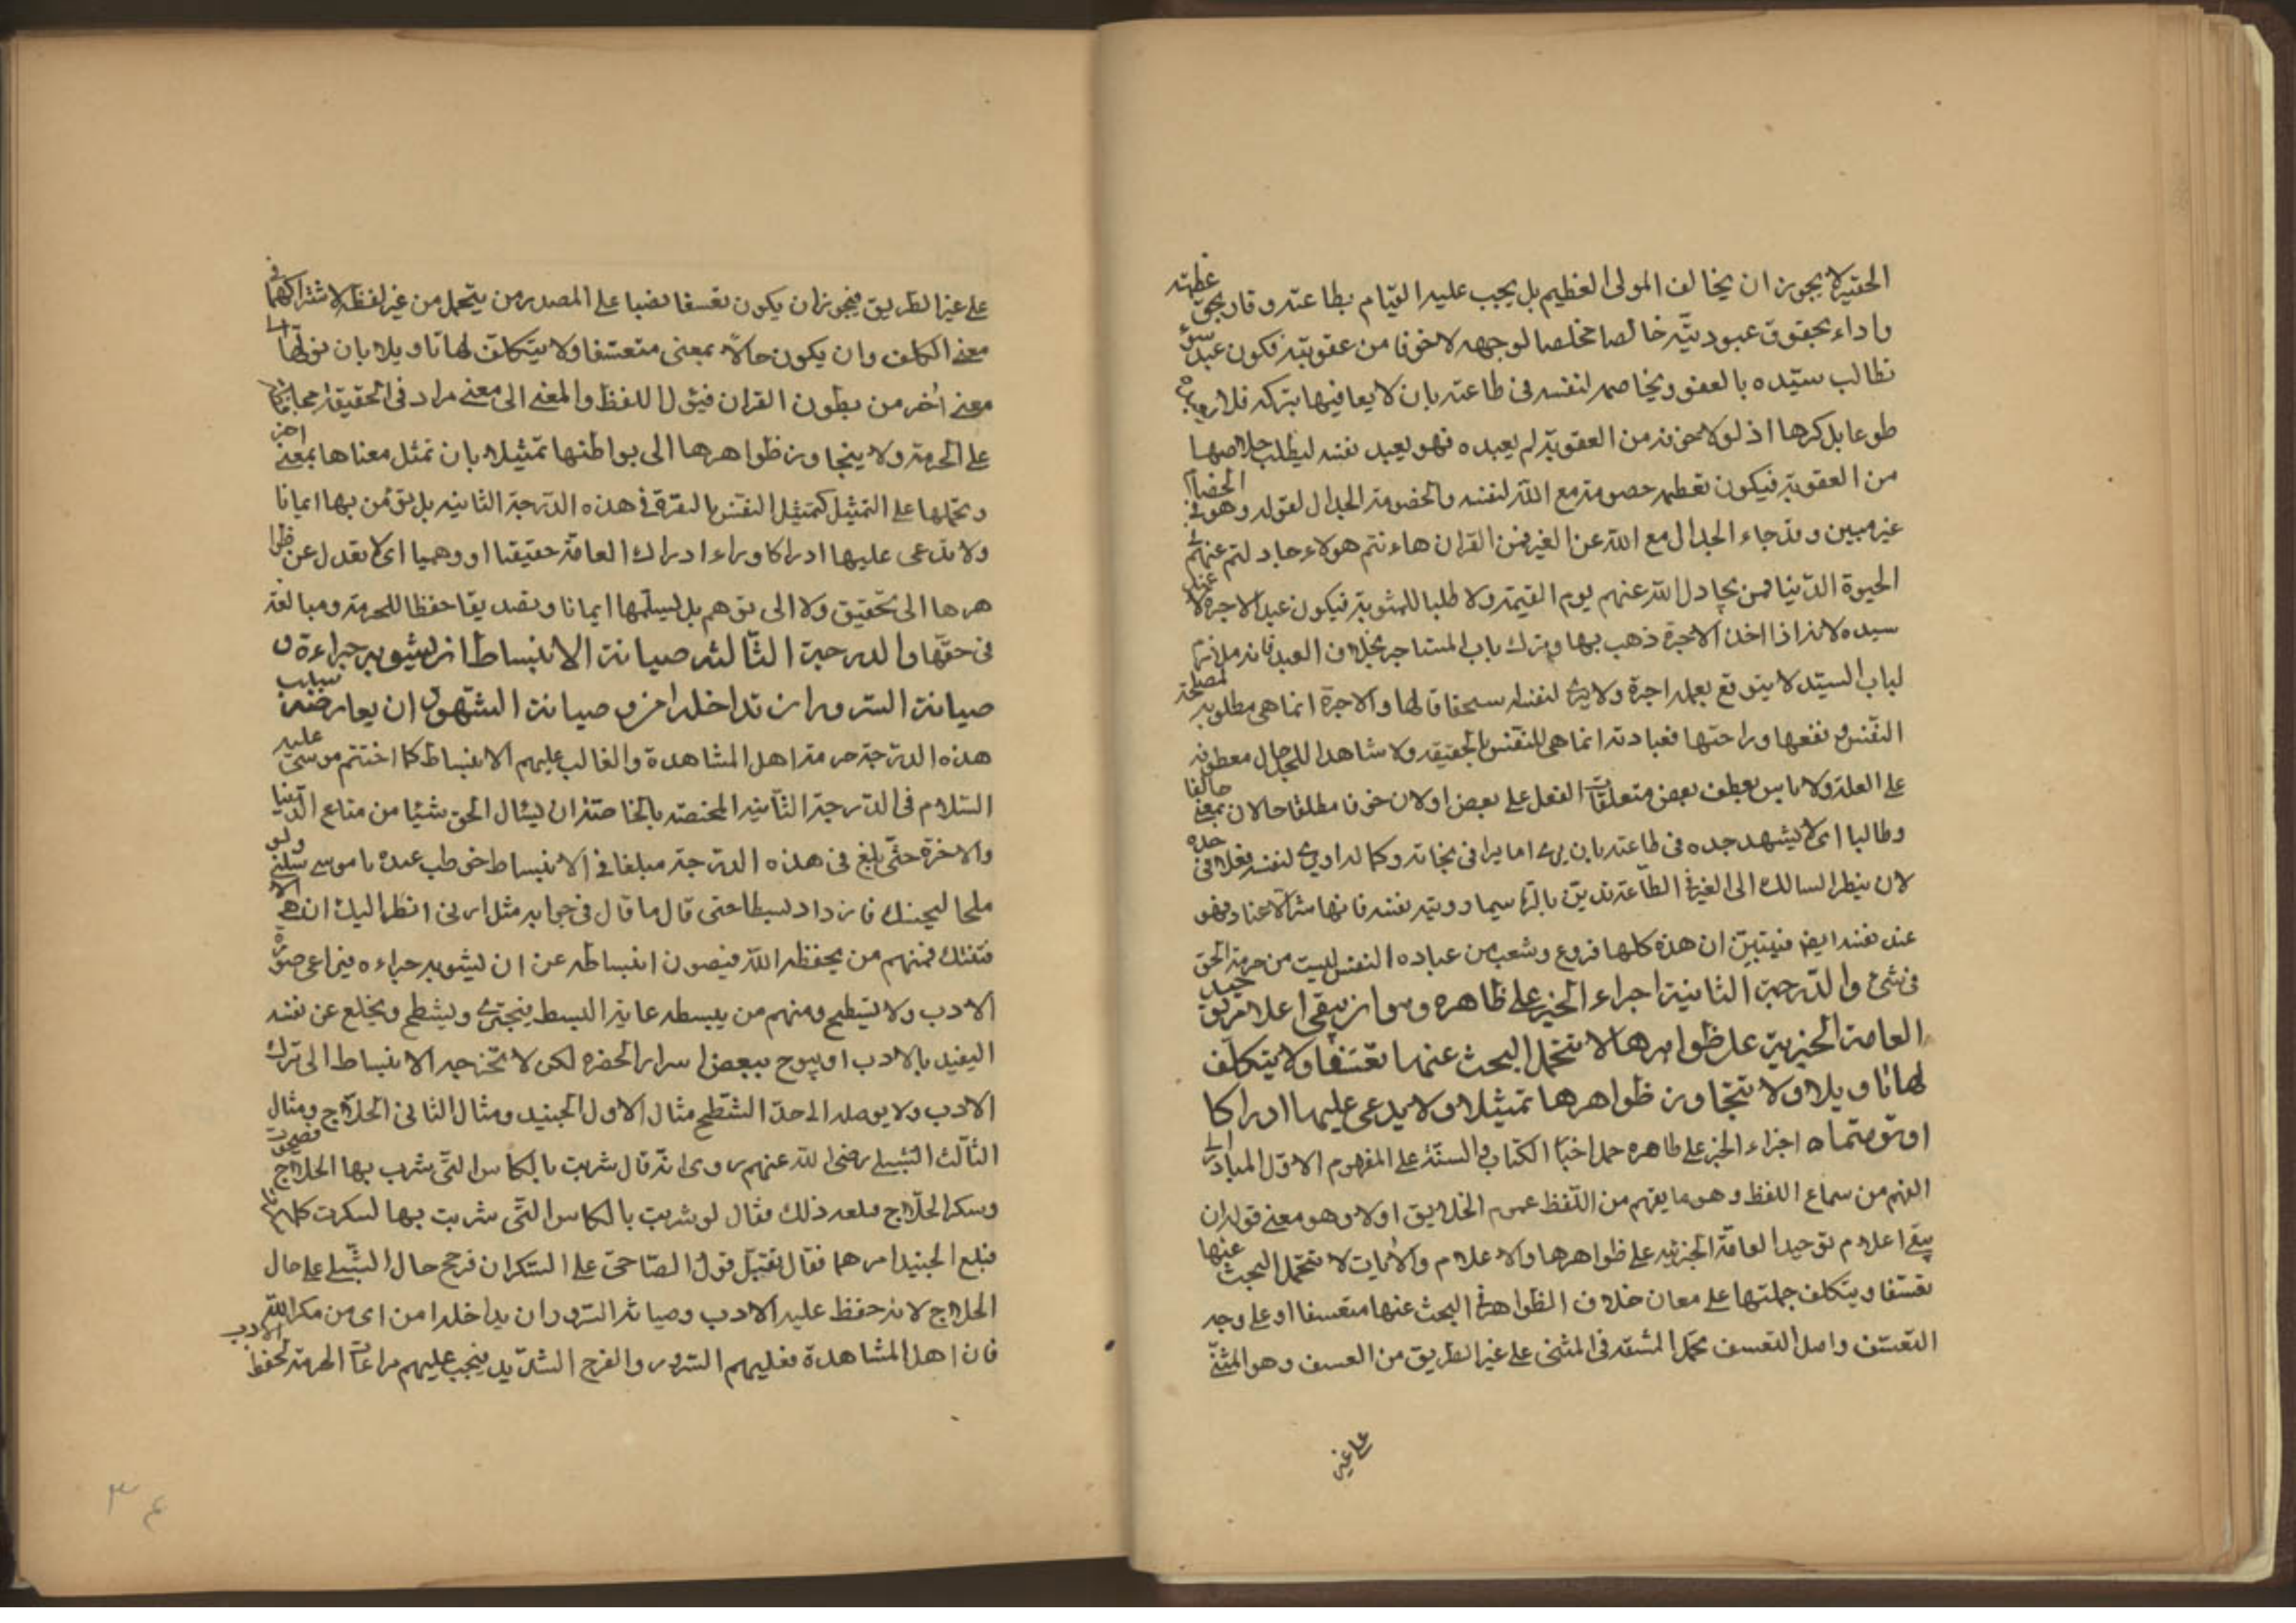 الحقير لا يجوز ان يخالف المولى العظيم بل يجب عليه القيام بطاعته وقاد بحق عظمته
واداء بحقوق عبوديته خالصا مخلصا لوجهه لا خوفا من عقوبته فكون عبد سوء
نطالب سيّده بالعفو ويخاصم لنفسه فى طاعته بان لا يعاقبها بتركه فلا
طوعا بل كرها اذ لولا خوفه من العقوبة لم يعبده فهو يعبد نفسه ليطلب خلاصها
من العقوبة فيكون تعظمه خصومة مع اللّه لنفسه والخصومة الجدال لقوله وهو فى الخصام
غير مبين وقد جاء الجدال مع اللّه عن الغير فى القران هاءنتم هولاء جادلتم عنهم فى
الحيوة الدّنيا فمن يجادل اللّه عنهم يوم القيمة ولا طلبا للمثوبة فيكون عبد الاجرة لا عبد
سيده لانه اذا اخذ الاجرة ذهب بها وترك باب المستاجر بخلاف العبد فانه ملازم
لباب السيّد لا يتوقع بعمله اجرة ولا يرى لنفسه استحقاقا لها والاجرة انما هى مطلوبة لمصلحة
النّفس ونفعها وراحتها فعبادته انما هى للنفس بالحقيقه ولا شاهدا للجلال معطوف
على العلة ولا باس بعطف بعض متعلقات الفعل على بعض او لان خوفا مطلقا حالان بمعنى خائفا
وطالبا اى لا يشهد جده فى طاعته بان يرى اما يرا فى نجاته وكماله او يرى لنفسه فعلا فى جده
لان ينظر السالك الى الغير فى الطّاعة تدين بالرّيا سيما ورويته نفسه فانها شر الاعداد فهو
عند نفسه ايضا فيتبيّن ان هذه كلها فروع وشعب من عباده النفس ليست من حرمة الحق
فى شئ والدّرجة الثانية اجراء الخبر على ظاهره وهو ان يبقى اعلام توحيد
العامة الخبرية على ظواهرها لا تتحمل البحث عنها تعسّفا ولا يتكلّف
لها تاويلا ولا تتجاوز ظواهرها تمثيلا ولا يدعى عليها ادراكا
او توهّما ه اجراء الخبر على ظاهره حمل اخبار الكتاب والسنّة على المفهوم الاوّل المبادر الى
الفهم من سماع اللفظ وهو ما يفهم من اللّفظ عموم الخلايق اولا وهو معنى قوله ان
يبقى اعلام توحيد العامّة الخبريّه على ظواهرها والاعلام والايات لا تتحمّل البحث عنها
تعسّفا ويتكلف حملتها على معان خلاف الظواهر فى البحث عنها متعسفا او على وجه
التعسّف واصل التعسف تحمّل المشقه فى المشى على غير الطريق من العسف وهو المشى
على غير
على غير الطريق فيجوز ان يكون تعسفا نصبا على المصدر من يتحمل من غير لفظه لاشتراكهما فى
معنى الكلف وان يكون حالاً بمعنى متعسّفا ولا يتكلّف لها تاويلا بان نولّها الى
معنى اخر من بطون القران فيئول اللفظ والمعنى الى معنى مراد فى الحقيقة
على الحرمة ولا يتجاوز ظواهرها الى بواطنها تمثيلا بان تمثل معناها بمعنى اخر
وتحملها على التمثيل كتمثيل النفس بالبقرة فى هذه الدّرجة الثانيه بل نؤمن بها ايمانا
ولا ندعى عليها ادراكا وراء ادراك العامّة حقيقيا او وهميا اى لا نعدل عن ظوا
هرها الى تحقيق ولا الى توهم بل نسلّمها ايمانا وتصديقا حفظا للحرمة ومبالغة
فى حقّها والدرجة الثّالثة صيانة الانبساط ان يشوبه جراءة و
صيانة السرور ان يداخله امن و صيانة الشّهود ان يعارضه سبب
هذه الدرجة حرمة اهل المشاهدة والغالب عليهم الانبساط كما احتشم موسى عليه
السّلام فى الدّرجة الثّانية المختصة بالخاصّة ان يسئال الحق شيئا من متاع الدّنيا
والاخرة حتّى بلغ فى هذه الدرجة مبلغا فى الانبساط خوطب عنده يا موسى سلنى ولو
ملحا لعجينك فازداد بسطا حتى قال ما قال فى جوابه مثل ارنى انظر اليك ان هى الا
فتنتك فمنهم من يحفظه اللّه فيصون انبساطه عن ان يشوبه جراءه فيراعى صورة
الادب ولا يشطح ومنهم من يبسطه غاية البسط فيجترى ويشطح ويخلع عن نفسه
التقيد بالادب او يبوح ببعض اسرار الحضره لكن لا تخرجه الانبساط الى ترك
الادب ولا يوصله الى حدّ الشطّح مثال الاول الجنيد ومثال الثانى الحلّاج ومثال
الثّالث الشبلى رضى اللّه عنهم روى انّه قال شربت بالكاس الّتى شرب بها الحلاج فصحوت
وسكر الحلّاج فبلغه ذلك فقال لو شربت بالكاس الّتى شربت بها لسكرت كما
فبلغ الجنيد امرهما فقال نقبل قول الصّاحى على السّكران فرجح حال الشّبلى على حال
الحلاج لانه حفظ عليه الادب وصيانة السّرور ان يداخله امن اى من مكر اللّه
فان اهل المشاهدة يغلبهم السّرور والفرح الشدّيد فيجب عليهم مراعات الحرمة لحفظ الادب